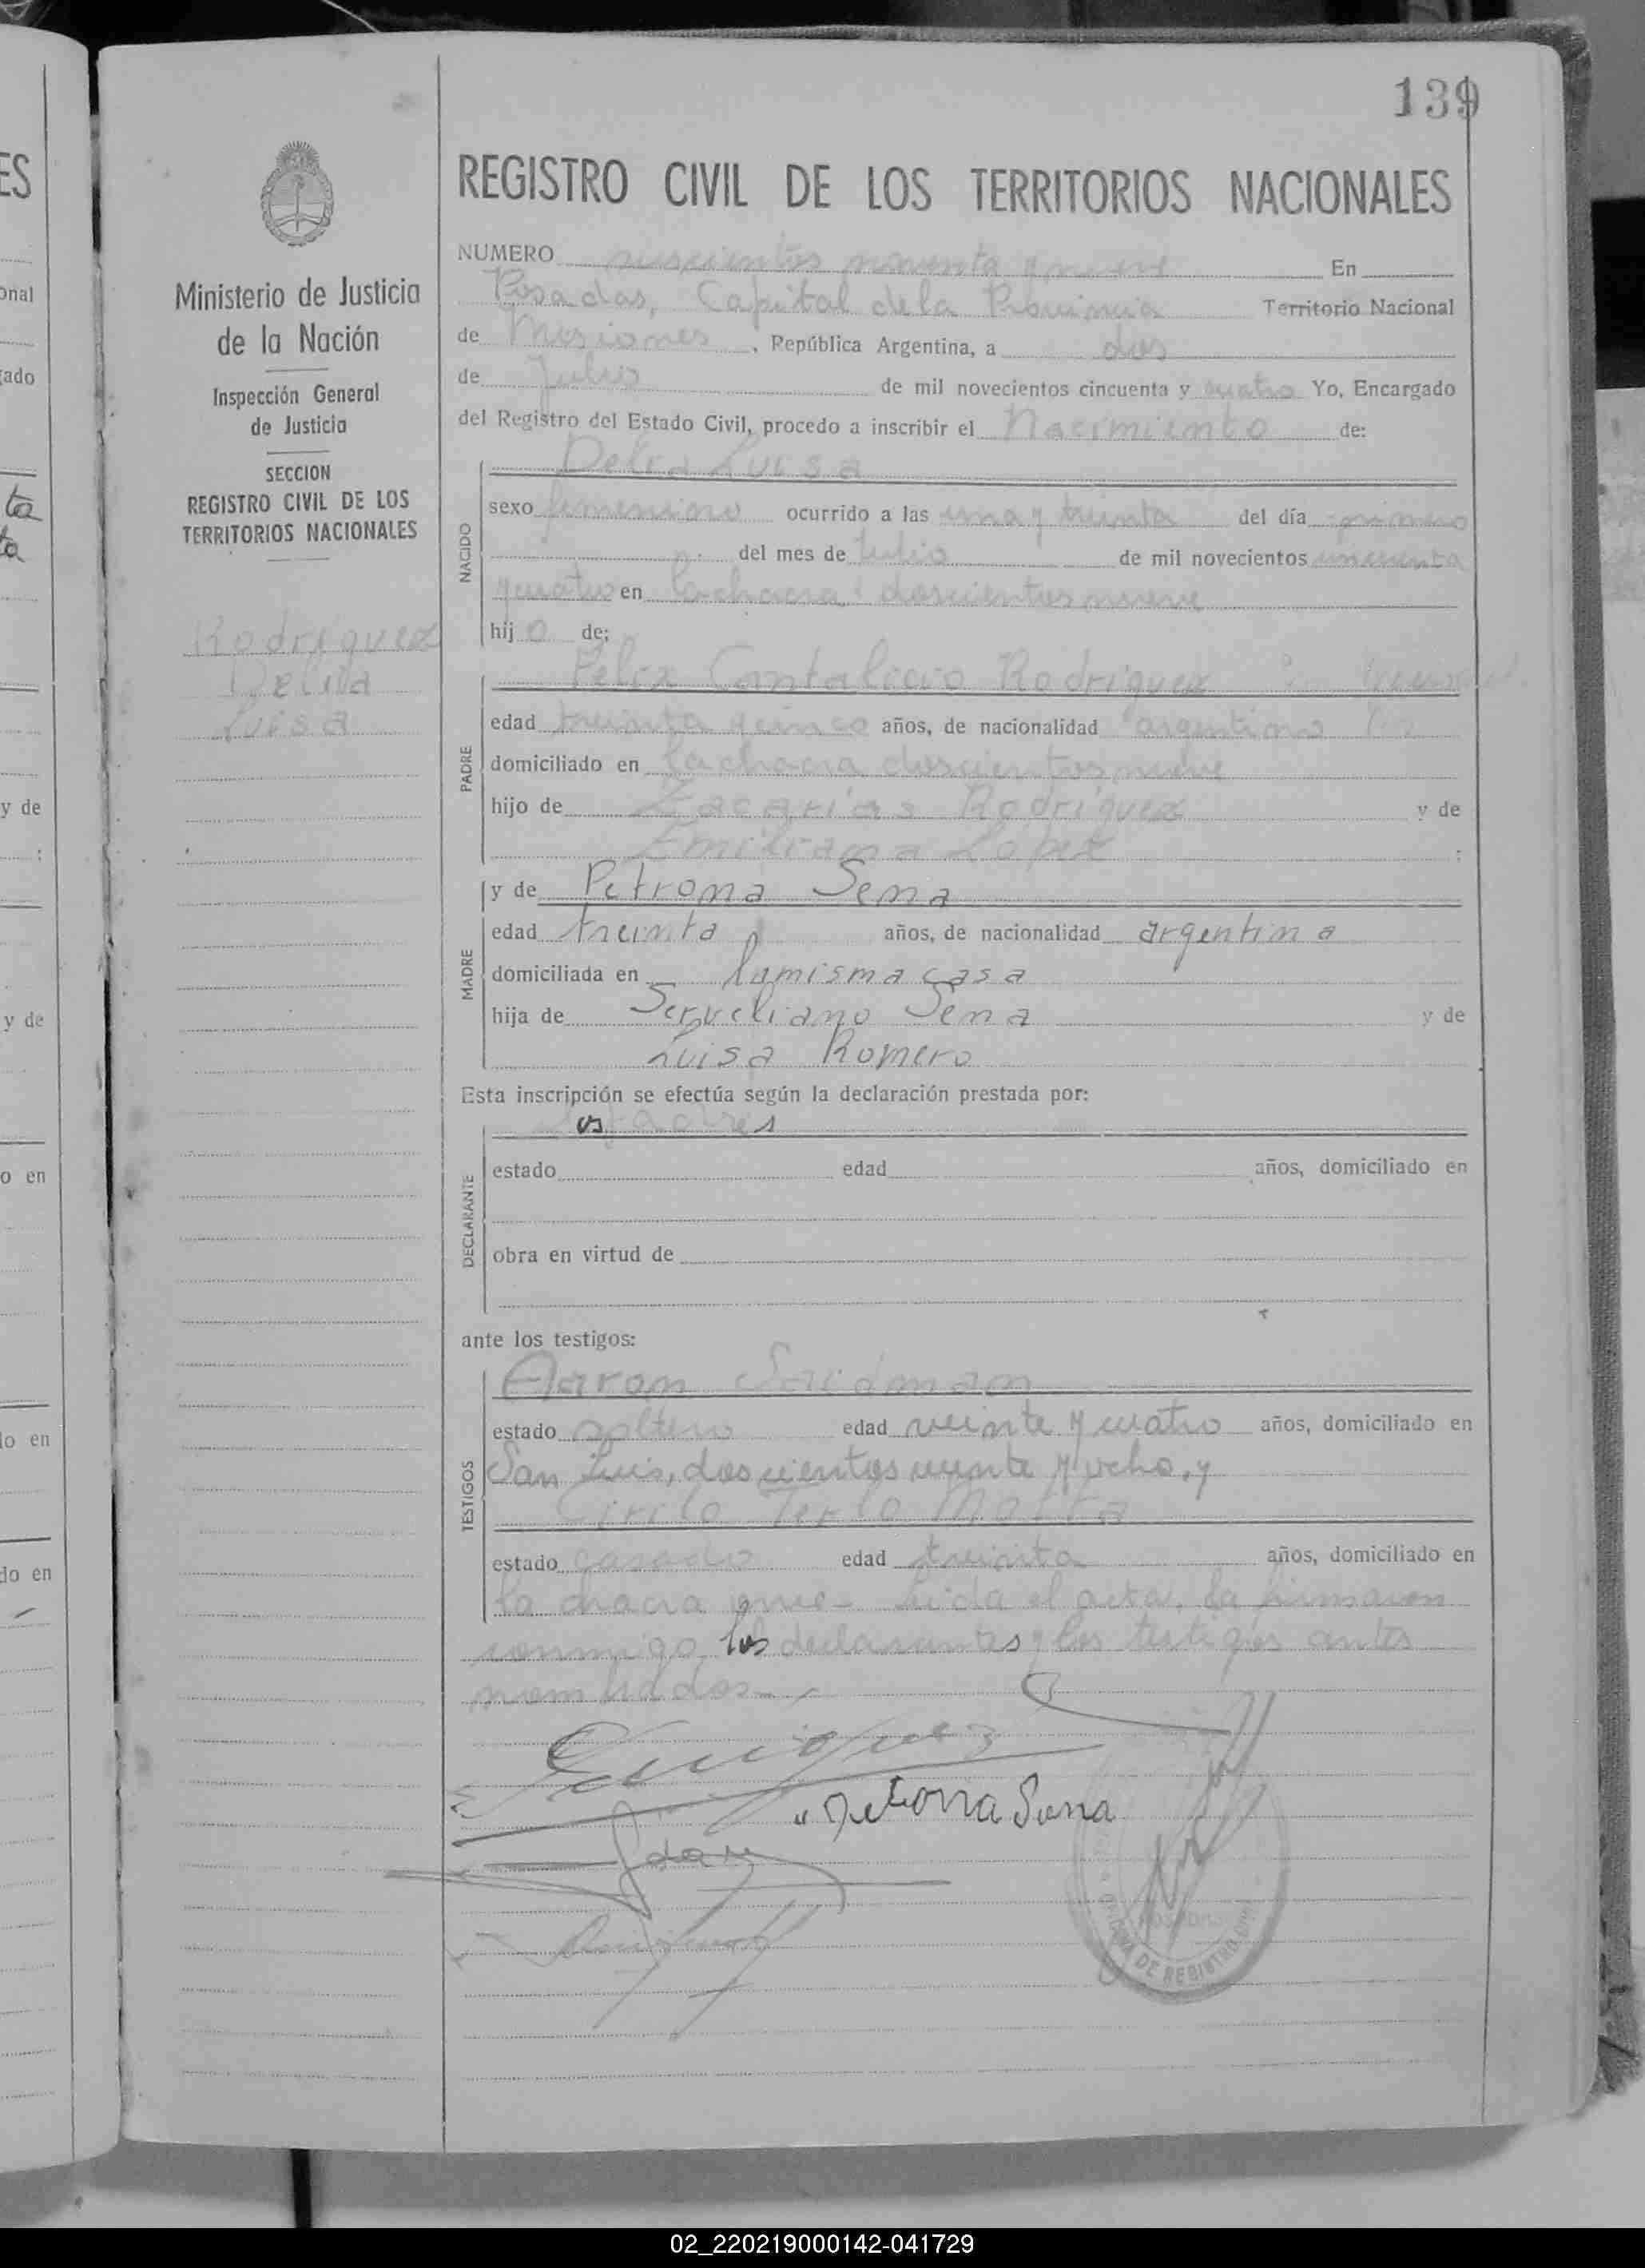 139
REGISTRO CIVIL DE LOS TERRITORIOS NACIONALES
Ministerio de Justicia
de la Nación
Inspección General
de Justicia
SECCION
REGISTRO CIVIL DE LOS
TERRITORIOS NACIONALES
Rodriguez
Delia
Luisa
NUMERO seiscientos noventa y nueve En
Posadas, Capital de la Provincia Territorio Nacional
de Misiones, República Argentina, a dos
de Julio de mil novecientos cincuenta y cuatro Yo, Encargado
del Registro del Estado Civil, procedo a inscribir el Nacimiento de:
NACIDO
Delia Luisa
sexo femenino ocurrido a las una y treinta del día primero
del mes de Julio de mil novecientos cincuenta
y cuatro en la chacra doscientos nueve
hij o de:
PADRE
Felix Cantalicio Rodriguez
edad treinta y cinco años, de nacionalidad argentino
domiciliado en la chacra doscientos nueve
hijo de Zacarias Rodriguez y de
Emiliana Lopez ;
MADRE
y de Petrona Sena
edad treinta años, de nacionalidad argentina
domiciliada en la misma casa
hija de Serveliano Sena y de
Luisa Romero
Esta inscripción se efectúa según la declaración prestada por:
DECLARANTE
los padres
estado edad años, domiciliado en
obra en virtud de
ante los testigos:
TESTIGOS
Aaron Saidman
estado soltero edad veinte y cuatro años, domiciliado en
San Luis, doscientos veinte y ocho, y
Cirilo Motta
estado casado edad treinta años, domiciliado en
la chacra once - Leida el acta, la firmaron
conmigo los declarantes y los testigos antes
nombrados.
Petrona Sena
OFICINA DE REGISTRO CIVIL
02_220219000142-041729